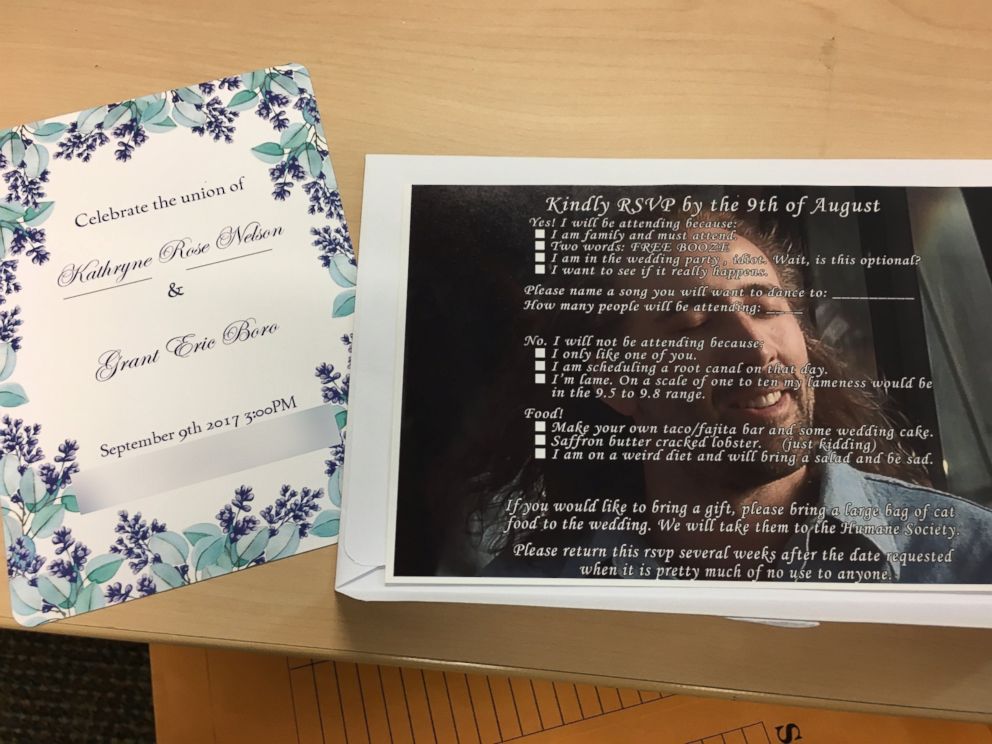 Celebrate the union of
Kathryne Rose Nelson
&
Grant Eric Boro
September 9th 2017 3:00PM
Kindly RSVP by the 9th of August
Yes! I will be attending because:
I am family and must attend.
Two words: FREE BOOZE
I am in the wedding party , idiot. Wait, is this optional?
I want to see if it really happens.
Please name a song you will want to dance to: ___________
How many people will be attending: _____
No. I will not be attending because:
I only like one of you.
I am scheduling a root canal on that day.
I'm lame. On a scale of one to ten my lameness would be
in the 9.5 to 9.8 range.
Food!
Make your own taco/fajita bar and some wedding cake.
Saffron butter cracked lobster. (just kidding)
I am on a weird diet and will bring a salad and be sad.
If you would like to bring a gift, please bring a large bag of cat
food to the wedding. We will take them to the Humane Society.
Please return this rsvp several weeks after the date requested
when it is pretty much of no use to anyone.